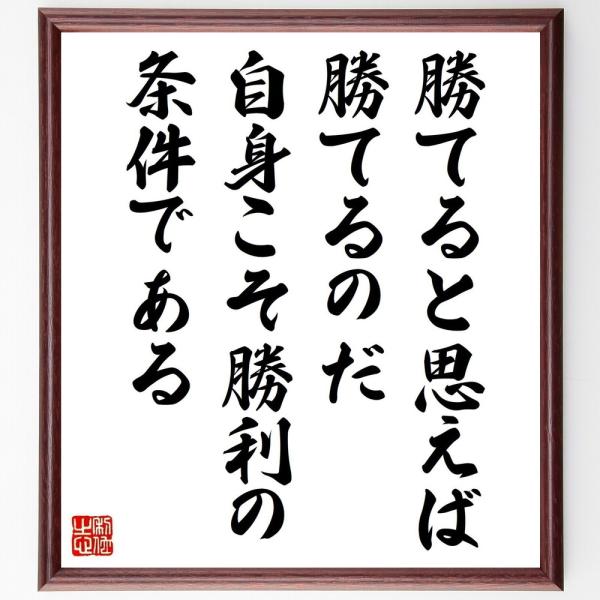 勝てると思えば
勝てるのだ
自身こそ勝利の
条件である